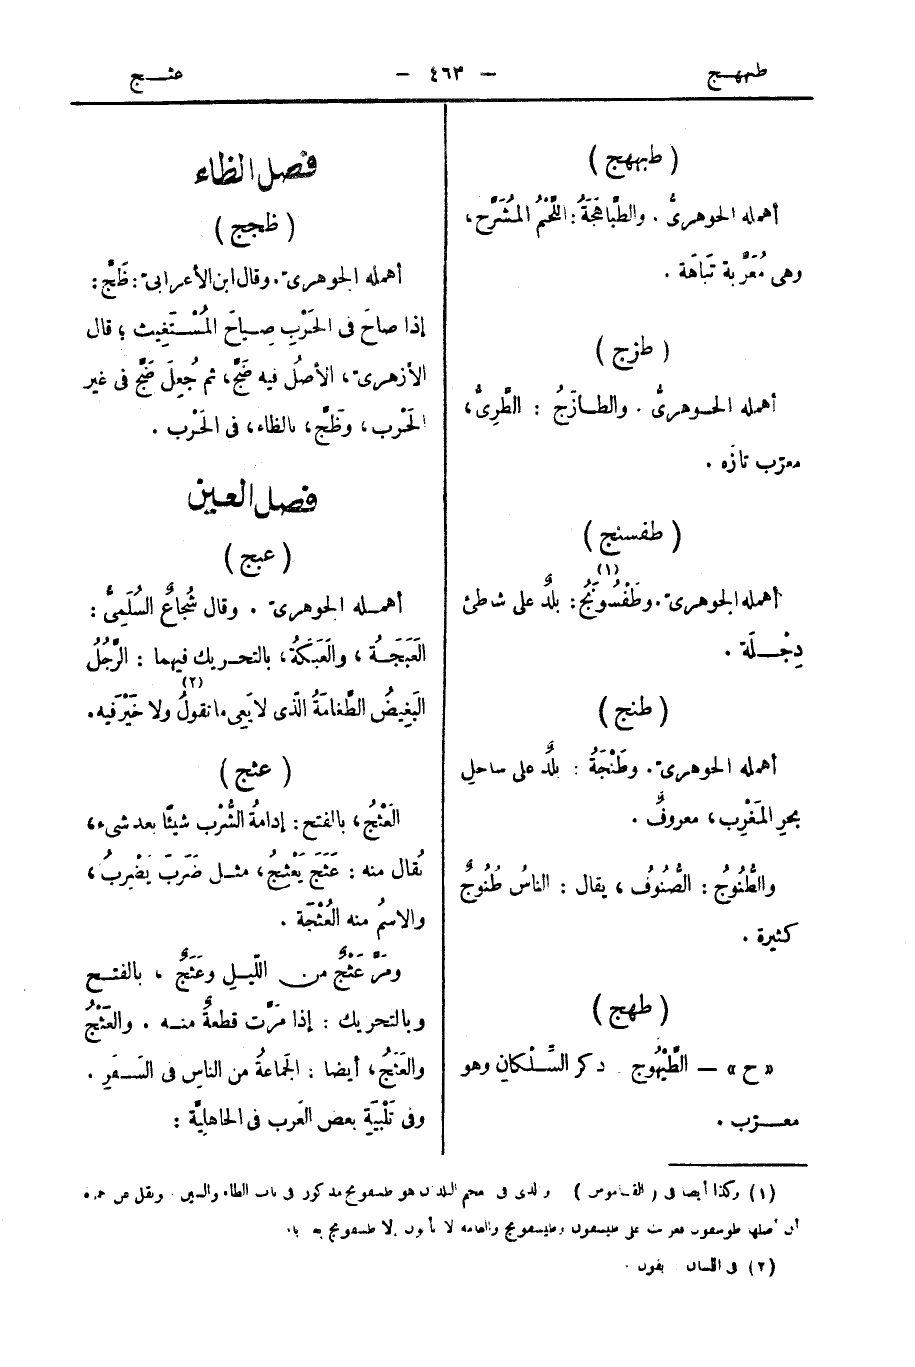 طبهج — ٤٦٣ — عثج
( طبهج )
أهمله الجوهرىُّ . والطَّبَاهَجَةُ : اللَّحْمُ المُشَرَّح ،
وهى مُعَرَّبة تَبَاهَة .
( طزج )
أهمله الجوهرىُّ . والطازَجُ : الطَّرِىُّ ،
معرّب تازَه .
( طفسنج )
أهمله الجوهرىّ . وطَفْسُونَجُ (١) : بلدٌ على شاطئ
دِجْلَة .
( طنج )
أهمله الجوهرىّ . وطَنْجَةُ : بلدٌ على ساحلِ
بحرِ المَغْرِب ، معروفٌ .
والطُّنُوجُ : الصُّنُوف ، يقال : الناسُ طُنوجٌ
كثيرة .
( طهج )
« ح » — الطَّيْهُوج ذكر السِّلْكانِ وهو
معرّب .
فصل الظاء
( ظجج )
أهمله الجوهرىّ . وقال ابن الأعرابىّ : ظَجَّ :
إذا صاحَ فى الحَرْبِ صِياحَ المُسْتَغِيث ؛ قال
الأزهرىّ ، الأصلُ فيه ضَجَّ ، ثم جُعِلَ ضَجَّ فى غير
الحَرْب ، وظَجَّ ، بالظاء ، فى الحَرْب .
فصل العين
( عبج )
أهمله الجوهرىّ . وقال شُجاعٌ السُلَمِىُّ :
العَبَجَةُ ، والعَبَكَةُ ، بالتحريك فيهما : الرَّجُلُ
البَغِيضُ الطَّغامَةُ الّذى لا يَعِى ما نقولُ (٢) ولا خَيْرَ فيه .
( عثج )
العَثْجُ ، بالفتح : إدامةُ الشُّرْب شيئًا بعد شىء ،
يُقال منه : عَثَجَ يَعْثِجُ ، مثل ضَرَبَ يَضْرِبُ ،
والاسمُ منه العُثْجَة .
ومَرَّ عَثْجٌ من اللّيل وعَثَجٌ ، بالفتح
وبالتحريك : إذا مرَّت قطعةٌ منه . والعَثْجُ
والعَثَجُ ، أيضا : الجَماعةُ من الناس فى السَفَرِ .
وفى تَلْبِيَةِ بعض العَرب فى الجاهليَّة :
(١) وكذا أيضا فى ( القاموس ) والذى فى معجم البلدان هو طسفونج مذكور فى باب الطاء والسين ونقل عن حمزة
أن أصلها طوسفون فعربت على طيسفون وطيسفونج والعامة لا يأتون إلا طسفونج به ياء
(٢) فى اللسان يقول .